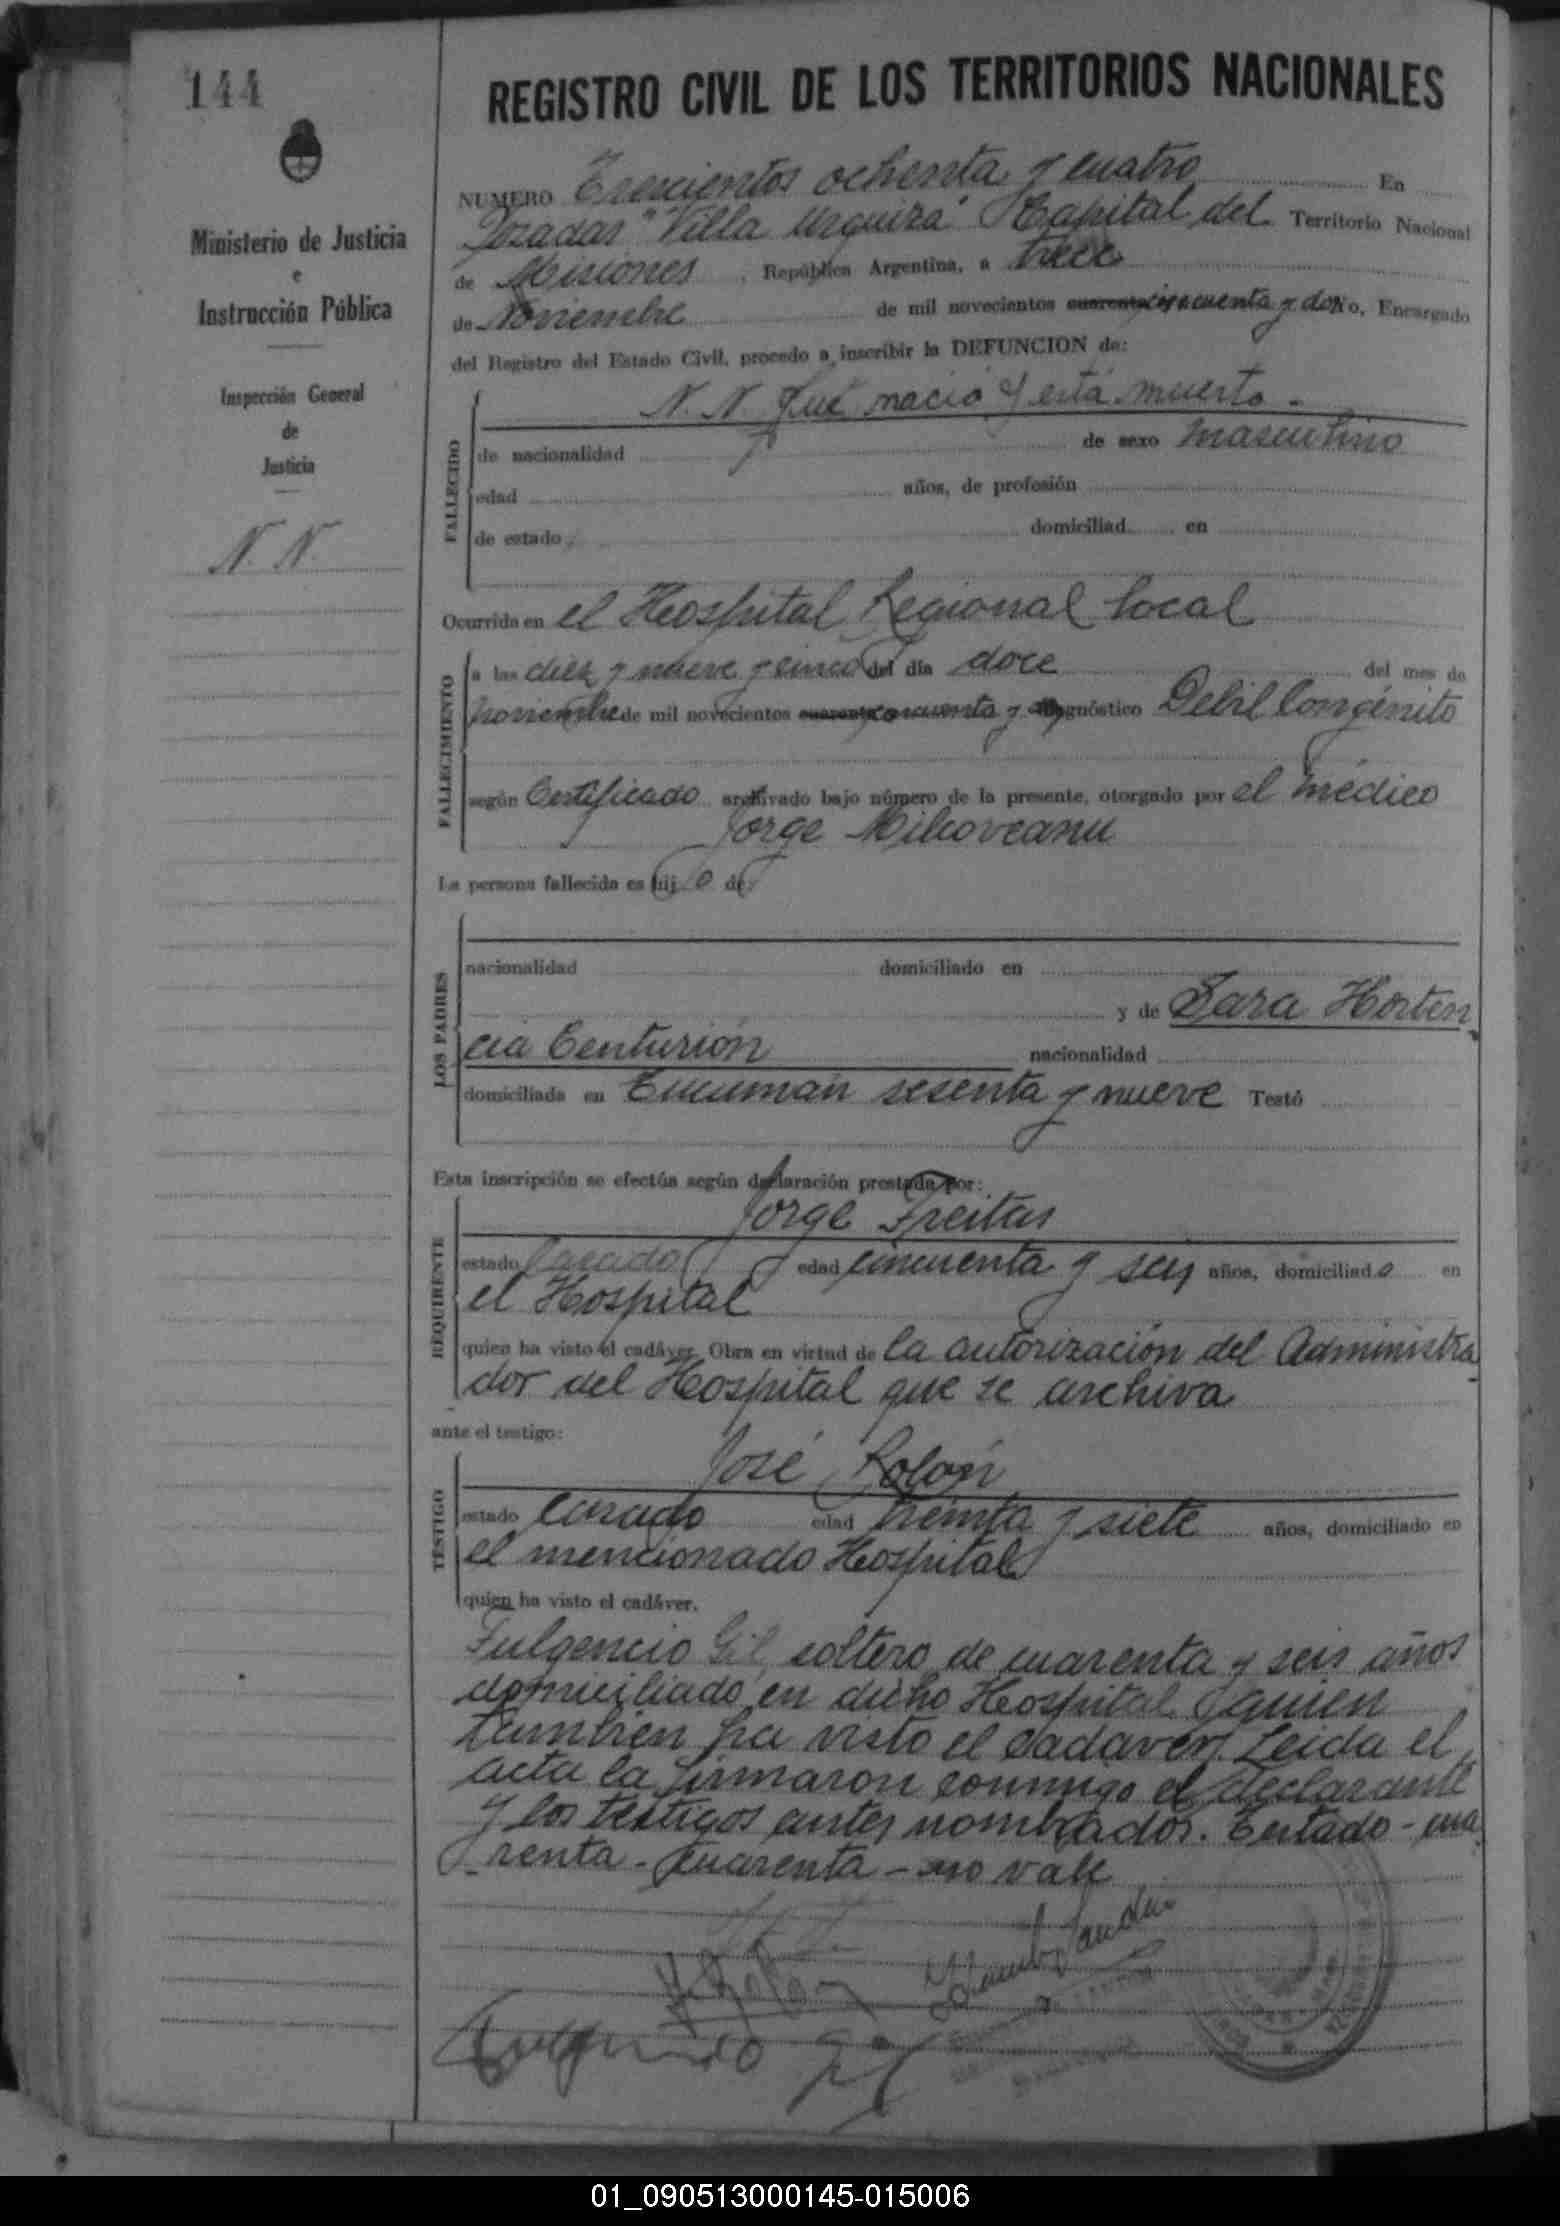 144
REGISTRO CIVIL DE LOS TERRITORIOS NACIONALES
Ministerio de Justicia
e
Instrucción Pública
Inspección General
de
Justicia
N. N.
NUMERO Trescientos ochenta y cuatro En
Posadas "Villa Urquiza" Capital del Territorio Nacional
de Misiones, República Argentina, a trece
de Noviembre de mil novecientos cuarenta cincuenta y dos Yo, Encargado
del Registro del Estado Civil, procedo a inscribir la DEFUNCION de:
FALLECIDO
N. N. Que nació y está muerto.-
de nacionalidad de sexo masculino
edad años, de profesión
de estado domiciliad en
Ocurrida en el Hospital Regional local
FALLECIMIENTO
a las diez y nueve y cinco del día doce del mes de
noviembre de mil novecientos cuarenta cincuenta y dos diagnóstico Debil Congénito
según Certificado archivado bajo número de la presente, otorgado por el médico
Jorge Milcoveanu
La persona fallecida es hijo de
LOS PADRES
nacionalidad domiciliado en
y de Sara Horten
cia Centurión nacionalidad
domiciliada en Tucumán sesenta y nueve Testó
Esta inscripción se efectúa según declaración prestada por:
REQUIRENTE
Jorge Freitas
estado Casado edad cincuenta y seis años, domiciliado en
el Hospital
quien ha visto el cadáver. Obra en virtud de la autorización del Administra
dor del Hospital que se archiva
ante el testigo:
TESTIGO
José Rolón
estado casado edad treinta y siete años, domiciliado en
el mencionado Hospital
quien ha visto el cadáver.
Fulgencio Gil, soltero, de cuarenta y seis años
domiciliado en dicho Hospital, quien
también ha visto el cadáver. Leida el
acta la firmaron conmigo el declarante
y los testigos antes nombrados. Testado - cua
renta - cuarenta - no vale
Fulgencio Gil
01_090513000145-015006